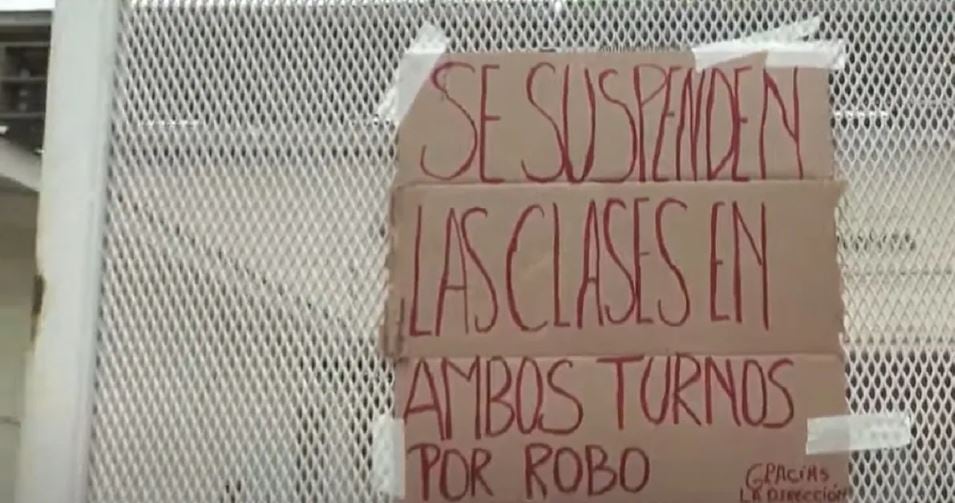 SE SUSPENDEN
LAS CLASES EN
AMBOS TURNOS
POR ROBO
GRACIAS
LA DIRECCIÓN